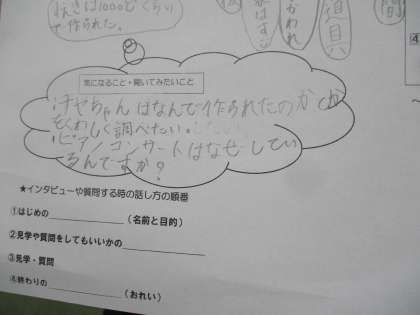 は1000どくらい
で作られた。
道具
気になること・聞いてみたいこと
けやちゃんはなんで作られたのか
をくわしく調べたい。
ピアノコンサートはなぜしてい
るんですか?
★インタビューや質問する時の話し方の順番
①はじめの（名前と目的）
②見学や質問をしてもいいかの
③見学・質問
④終わりの（おれい）
④